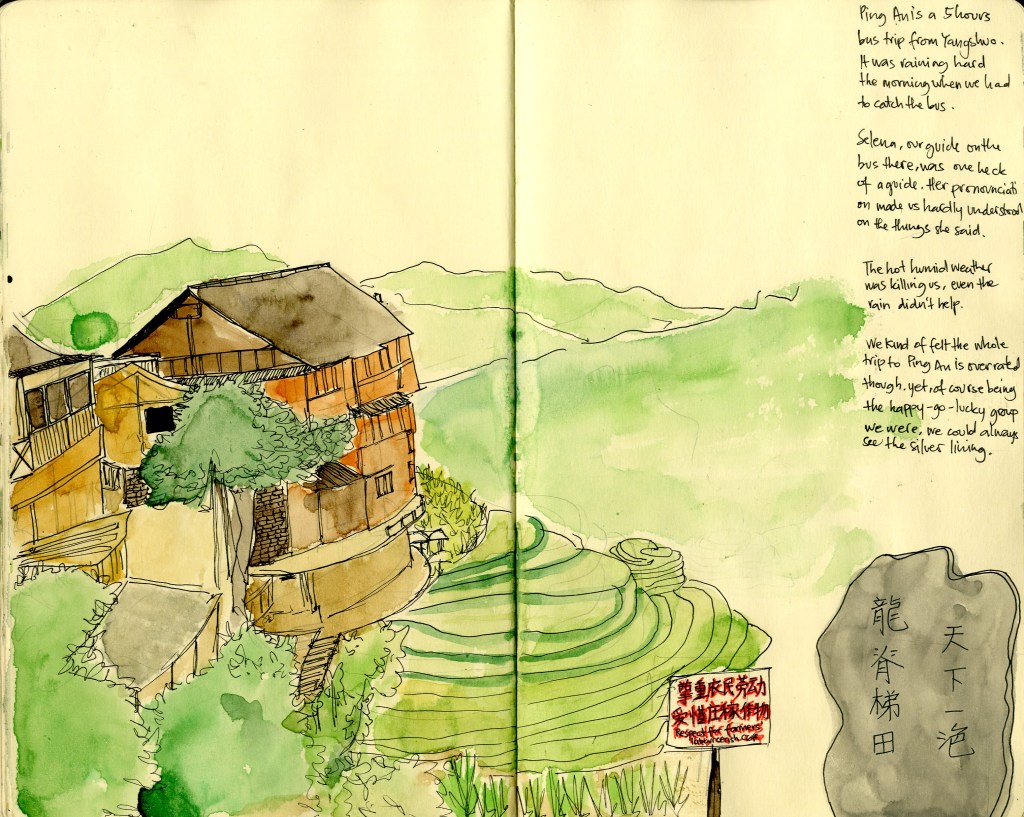 Ping An is a 5 hours
bus trip from Yangshuo.
It was raining hard
the morning when we had
to catch the bus.
Selena, our guide on the
bus there, was one heck
of a guide. Her pronounciati
on made us hardly understood
on the things she said.
The hot humid weather
was killing us, even the
rain didn't help.
We kind of felt the whole
trip to Ping An is overrated
though. yet, of course being
the happy-go-lucky group
we were, we could always
see the silver lining.
尊重农民劳动
爱惜庄稼作物
Respect for farmers'
天下一绝
龍脊梯田